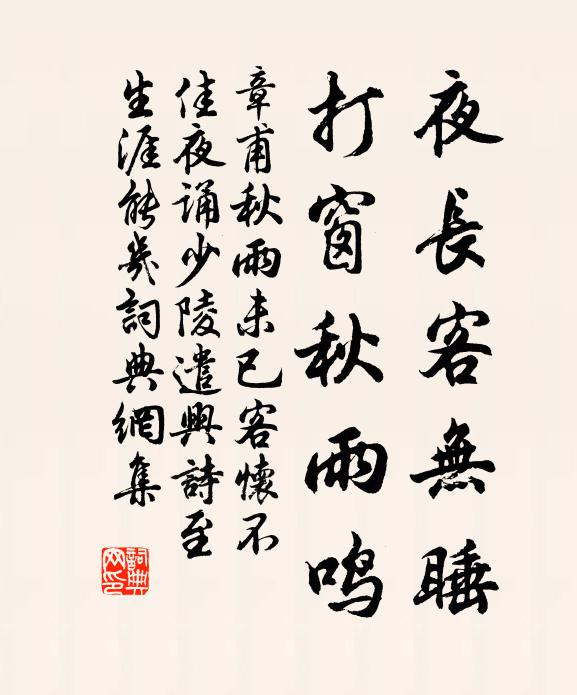 夜長客無睡
打窗秋雨鸣
章甫秋雨未已客懷不
佳夜诵少陵遣興詩至
生涯能幾詞典網集
詞典网印